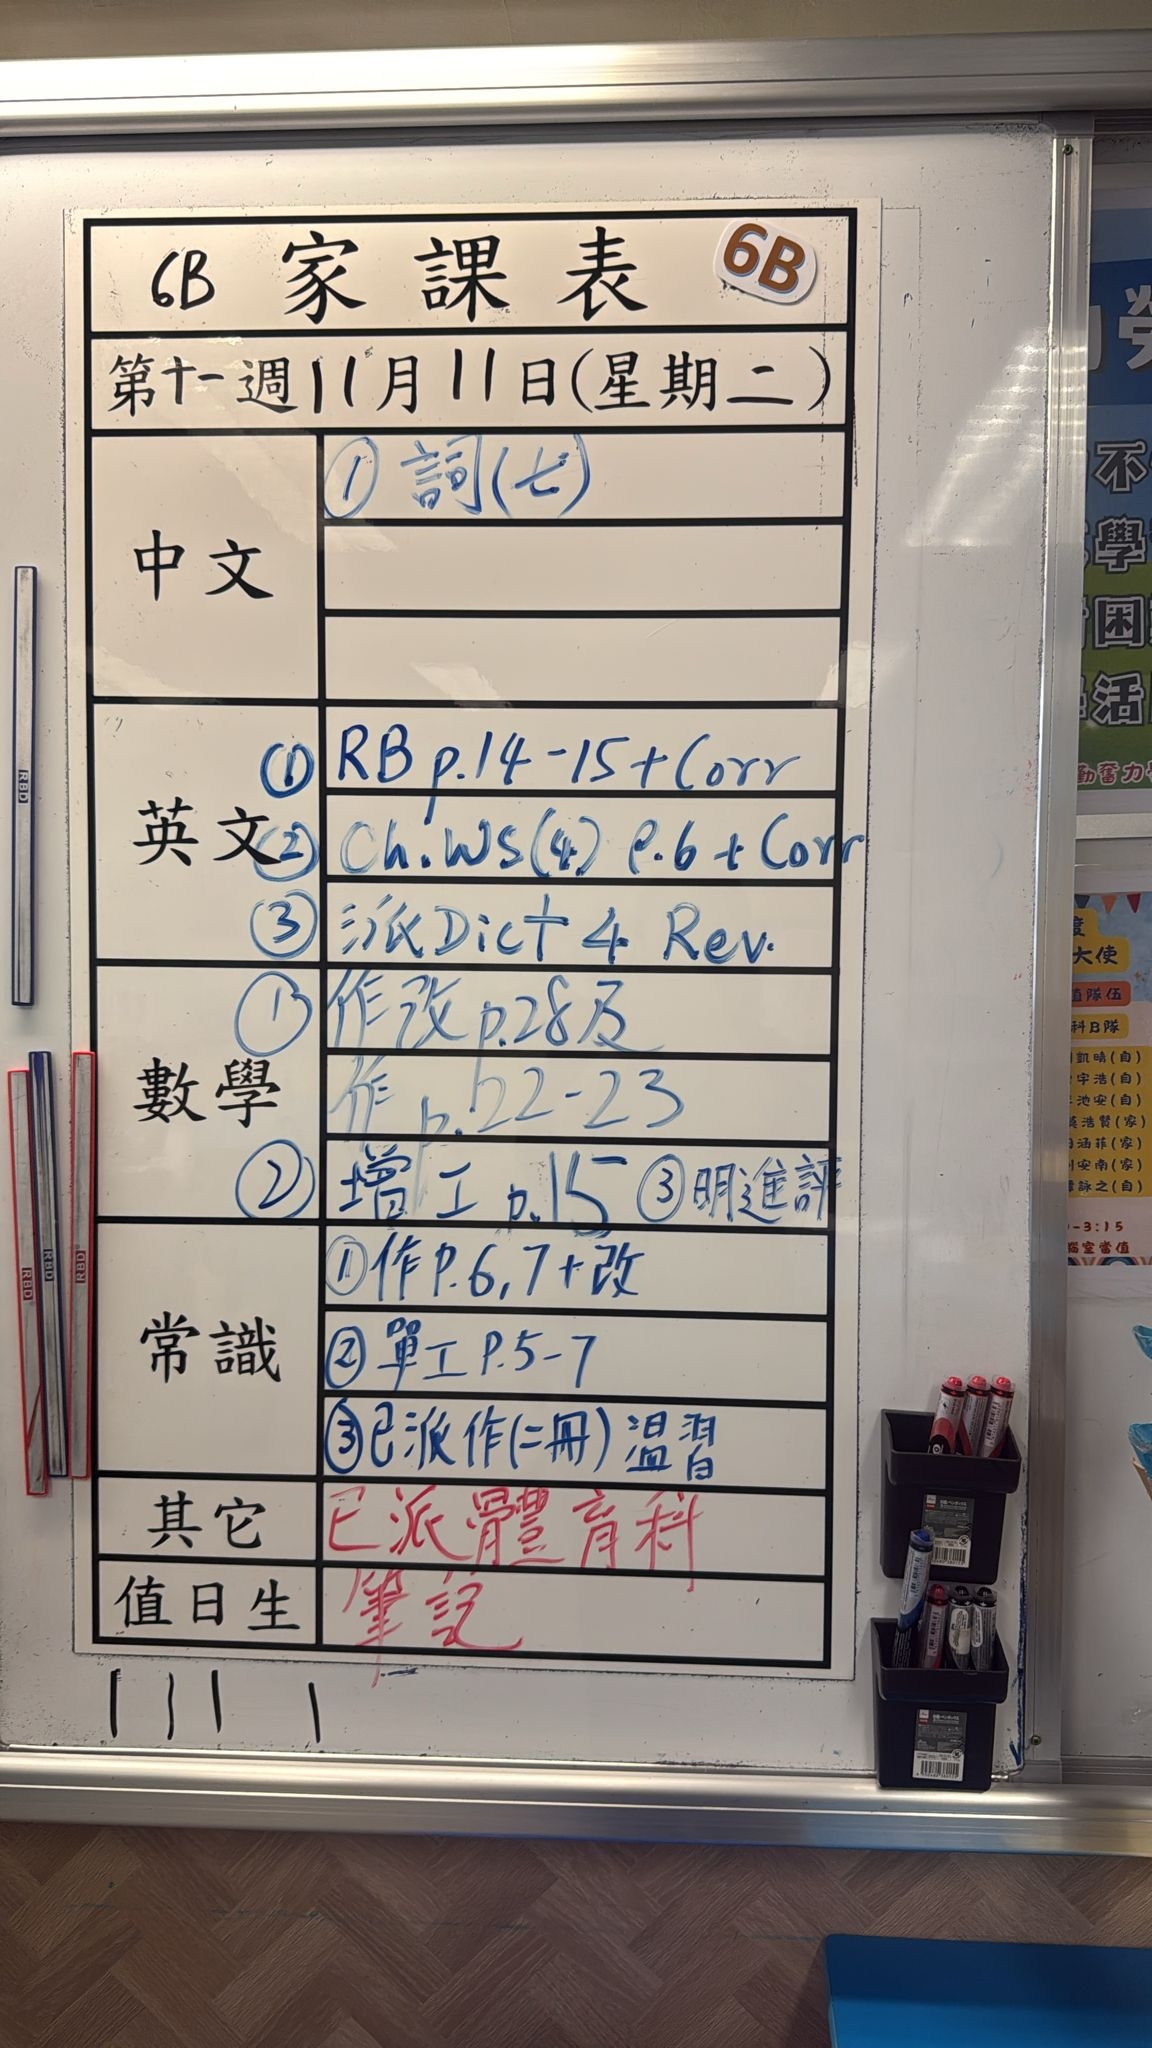 6B 家課表 6B
第十一週11月11日(星期二)
中文
① 詞(七)
英文
① RB p.14-15+Corr
② Ch.WS(4) P.6+Corr
③ 派Dict 4 Rev.
數學
① 作改p.28及
作p.22-23
② 增工p.15 ③明進評
常識
①作P.6,7+改
②單工P.5-7
③已派作(二冊)溫習
其它
已派體育科
值日生
筆記
RBD
RBD
RBD
RBD
不
學
困
活
勤奮力
大使
值隊伍
科B隊
凱晴(自)
宇浩(自)
池安(自)
浩賢(家)
涵菲(家)
安南(家)
詠之(自)
-3:15
腦室當值